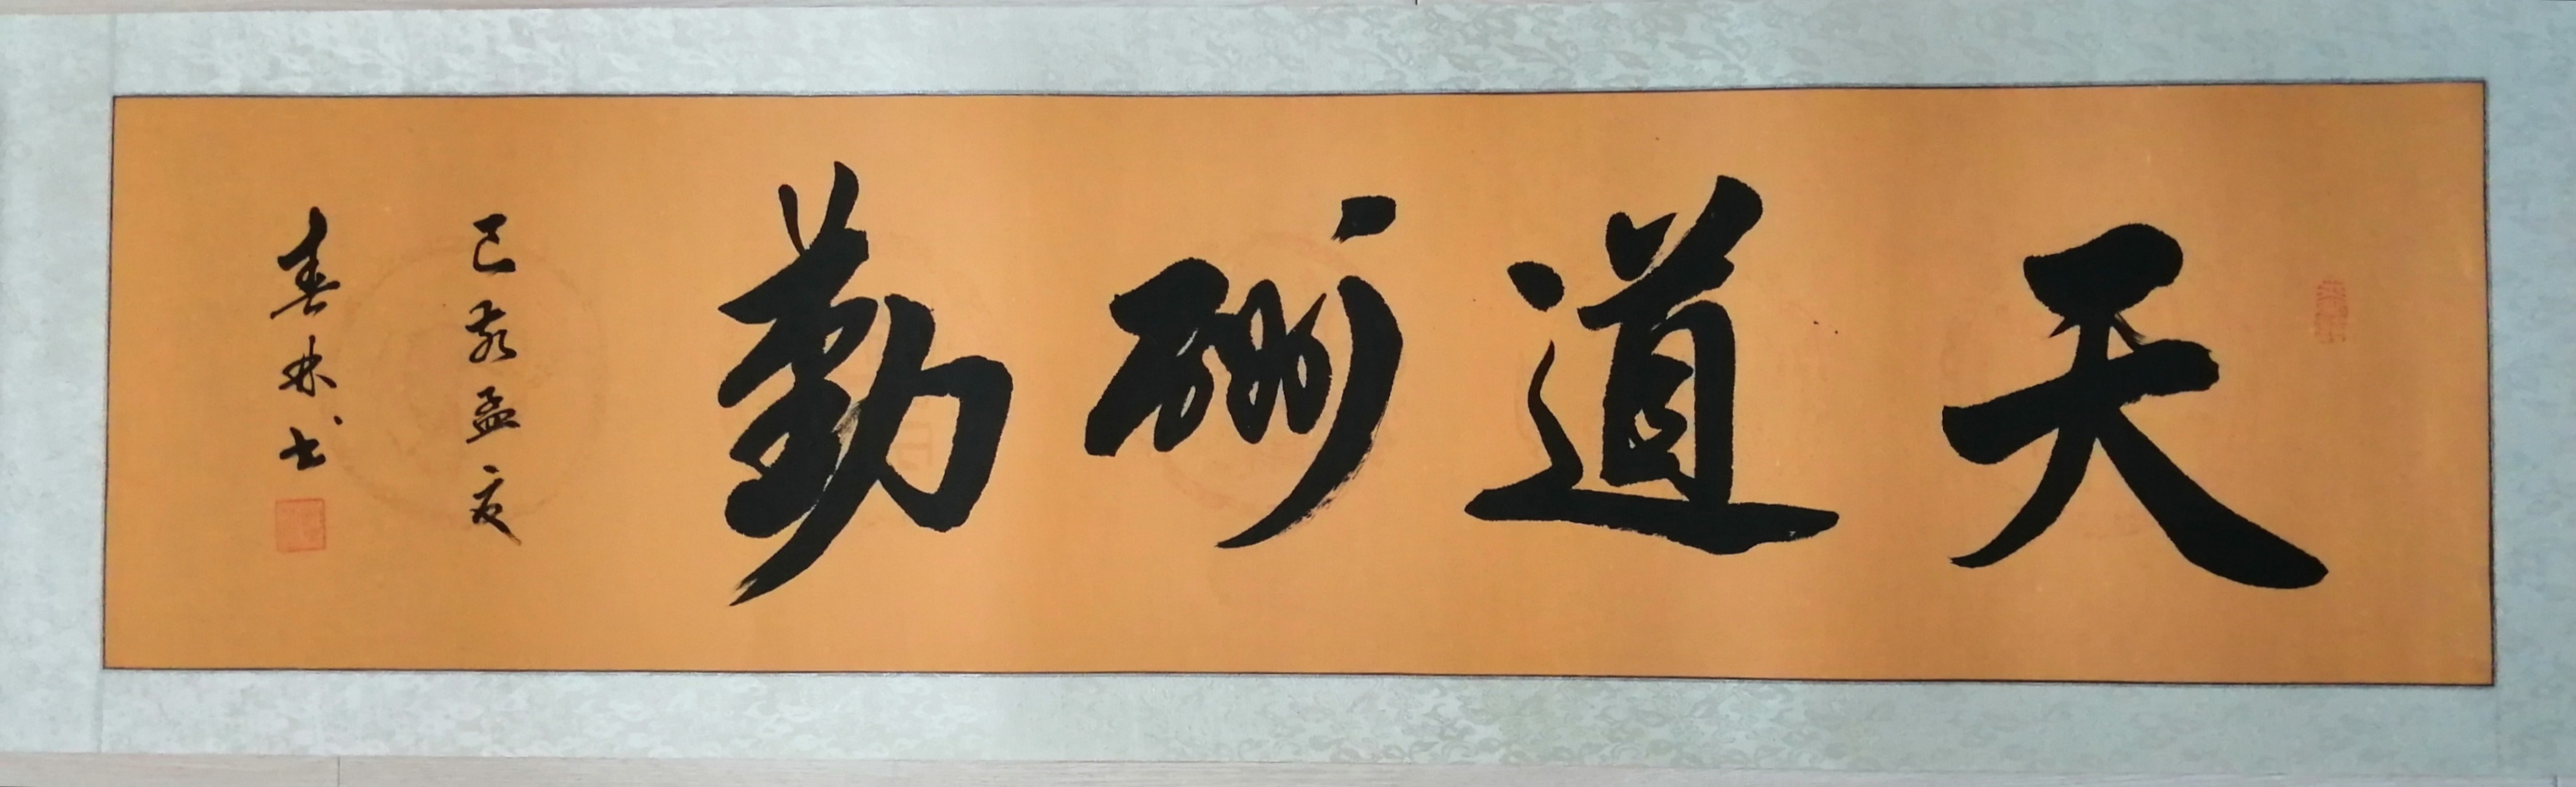 天道酬勤
己亥孟夏
春林书